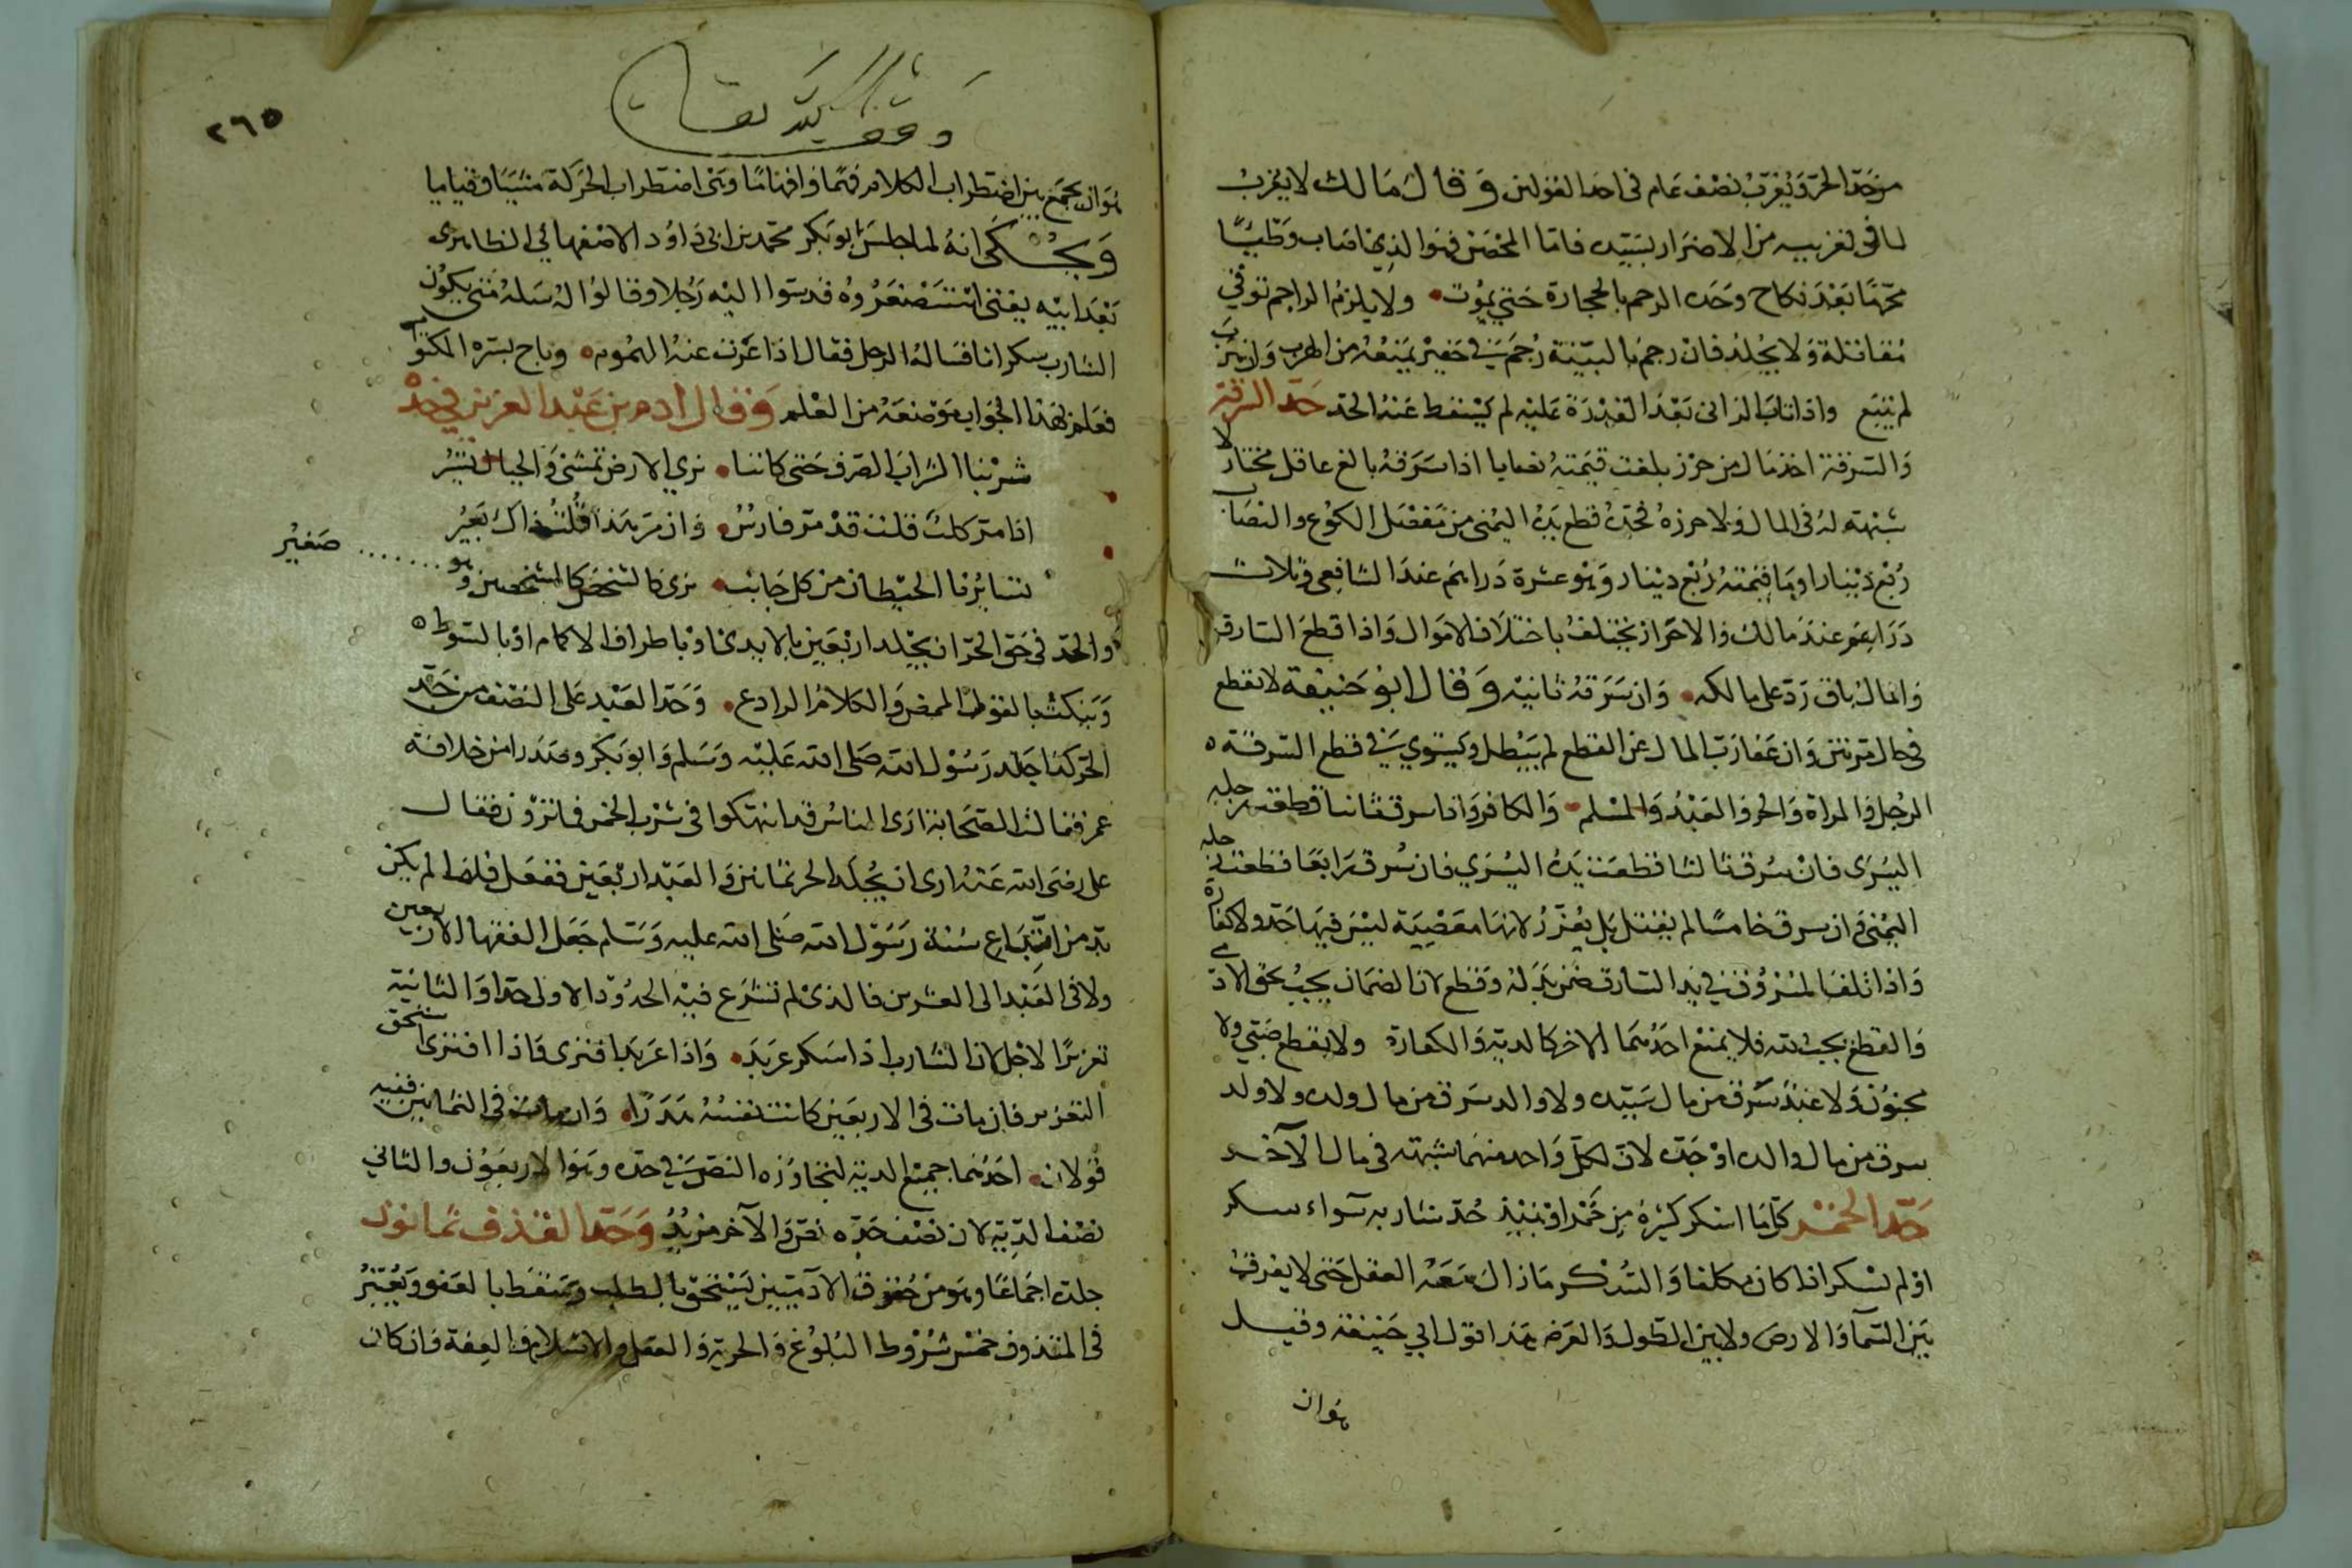 من حد الحر ويغرب نصف عام في احد القولين وقال مالك لا يغرب
لما في تغريبه من الاضرار بسيده فاما المحصن فهو الذي اصاب وطئًا
محرمًا بعد نكاح وحده الرجم بالحجارة حتى يموت ولا يلزم الراجم توقي
مقاتلة ولا يجلد فان رجم بالبينة رجم في حفير يمنعه من الهرب وان هرب
لم يتبع واذا تاب الزاني بعد القدرة عليه لم يسقط عنه الحد حد السرقة
والسرقة اخذ مال من حرز بلغت قيمته نصابا اذا سرقه بالغ عاقل مختار لا
شبهة له في المال ولا حرزه فحده قطع يده اليمنى من مفصل الكوع والنصاب
ربع دينار او ما قيمته ربع دينار وهو عشرة دراهم عند الشافعي وثلاث
دراهم عند مالك والاحراز يختلف باختلاف الاموال واذا قطع السارق
والمال باق رد على مالكه وان سرقه ثانيه وقال ابو حنيفة لا يقطع
في مال مرتين وان عفا رب المال عن القطع لم يبطل ويستوي في قطع السرقة
الرجل والمراة والحر والعبد والمسلم والكافر واذا سرق ثانيا قطعت رجله
اليسرى فان سرق ثالثا قطعت يده اليسرى فان سرق رابعًا قطعت رجله
اليمنى وان سرق خامسًا لم يقتل بل يعزر لانها معصية ليس فيها حد ولا كفارة
واذا تلف المسروق في يد السارق ضمن بدله وقطع لان الضمان يجب بحق الادمي
والقطع يجب لله فلا يمنع احدهما الاخر كالدية والكفارة ولا يقطع صبي ولا
مجنون ولا عبد سرق من مال سيده ولا والد سرق من مال ولده ولا ولد
سرق من مال والده او جده لان لكل واحد منهما شبهة في مال الآخر
حد الخمر كل ما اسكر كثيره من خمر او نبيذ حد شاربه سواء سكر
او لم يسكر اذا كان مكلفا والسكر ما زال معه العقل حتى لا يفرق
بين السمآ والارض ولا بين الطول والعرض هذا قول ابي حنيفة وقيل
هو ان
وقف لله تعالى
٢٦٥
هو ان يجمع بين اضطراب الكلام فهمًا وافهامًا وبين اضطراب الحركة مشيًا وقياما
ويحكى انه لما جلس ابو بكر محمد بن ابي داود الاصفهاني الظاهري
بعد ابيه يفتي استصغروه فدسوا اليه رجلا وقالوا له سله متى يكون
الشارب سكرانا فساله الرجل فقال اذا عزبت عنه الهموم وباح بسره المكتوم
فعلم بهذا الجواب موضعه من العلم وقال ادم بن عبد العزيز في حده
شربنا الشراب الصرف حتى كاننا نرى الارض تمشي والجبال تسير
اذا مر كلب قلت قد مر فارس وان مر هذا قلت ذاك بعير
تسايرنا الحيطان من كل جانب نرى كالشخص كالشخصين وهو ....... صغير
والحد في حق الحر ان يجلد اربعين بالايدي او باطراف الاكمام او بالسوط
ويبكت بالقول الممض والكلام الرادع وحد العبد على النصف من حد
الحر كذا جلد رسول الله صلى الله عليه وسلم وابو بكر وصدرا من خلافة
عمر فقالت الصحابة ارى الناس قد انهمكوا في شرب الخمر فما ترون فقال
علي رضي الله عنه ارى ان يجلد الحر ثمانين والعبد اربعين ففعل فلما لم يكن
بد من اتباع سنة رسول الله صلى الله عليه وسلم جعل الفقها الاربعين
ولا في العبد الى العشرين فالذي لم تشرع فيه الحدود الاولى حدا والثانية
تعزيرًا لاجل ان الشارب اذا سكر عربد واذا عربد افترى فاذا افترى استحق
التعزير فان مات في الاربعين كانت نفسه هدرًا وان مات في الثمانين ففيه
قولان احدهما جميع الدية لتجاوزه النص في حده وهو الاربعون والثاني
نصف الدية لان نصف حده نص والآخر مزيد وحد القذف ثمانون
جلدة اجماعًا وهو من حقوق الآدميين يستحق بالطلب ويسقط بالعفو ويعتبر
في المقذوف خمس شروط البلوغ والحرية والعقل والاسلام والعفة فان كان